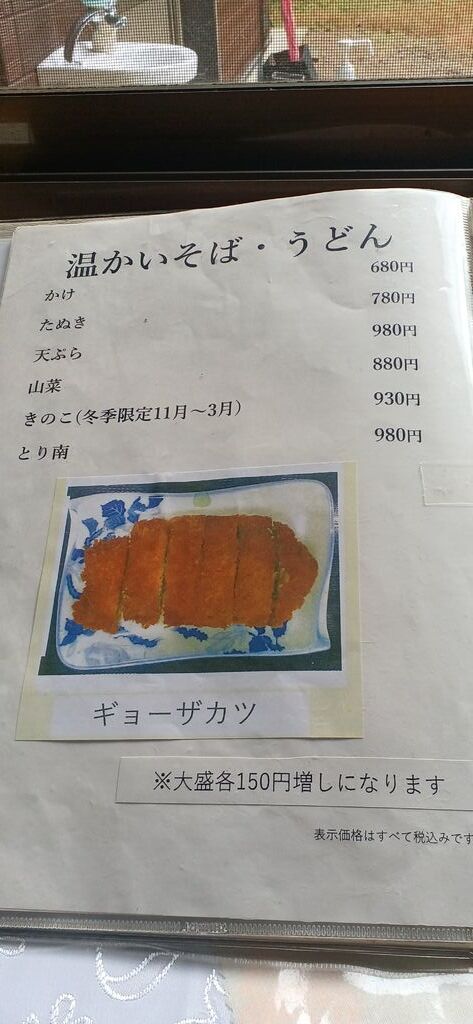 温かいそば・うどん
かけ 680円
たぬき 780円
天ぷら 980円
山菜 880円
きのこ(冬季限定11月～3月) 930円
とり南 980円
ギョーザカツ
※大盛各150円増しになります
表示価格はすべて税込みです